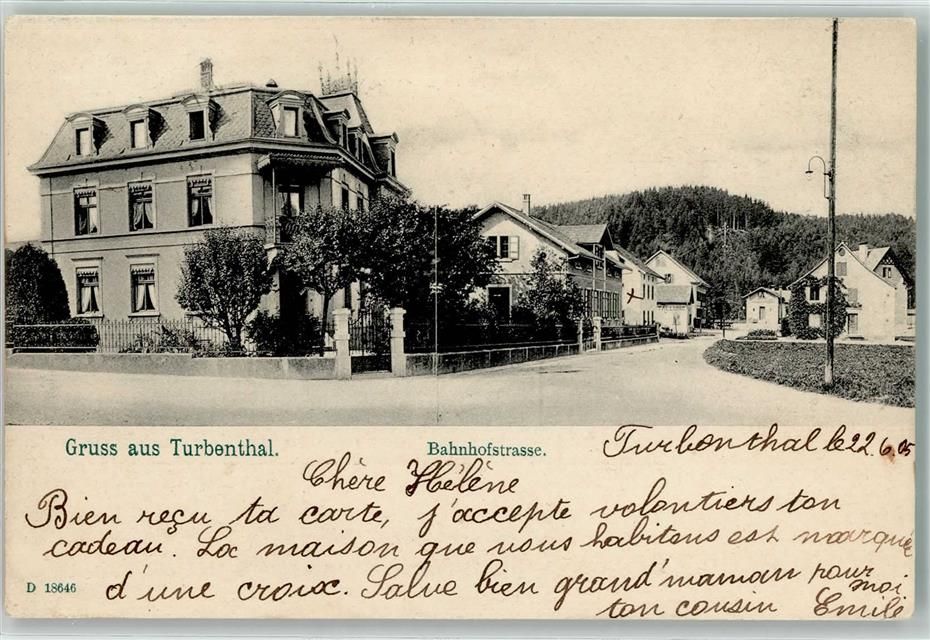 Gruss aus Turbenthal.
Bahnhofstrasse.
Turbenthal le 22.6.05
Chère Hélène
Bien reçu ta carte, j'accepte volontiers ton
cadeau. La maison que nous habitons est marquée
d'une croix. Salue bien grand'maman pour
moi
ton cousin Emile
D 18646